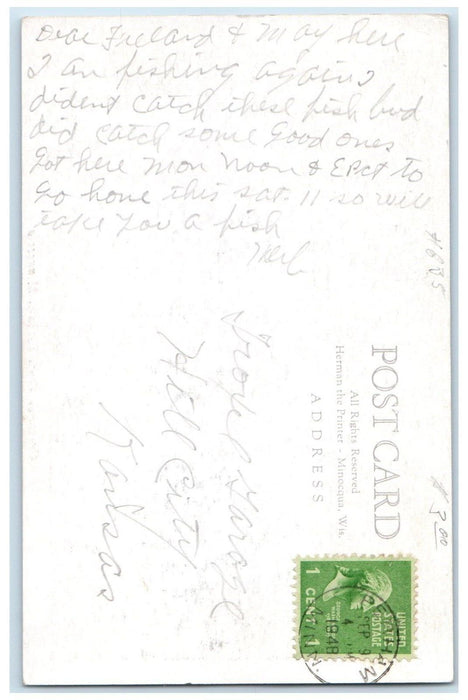 Dear Freland & May here
I am fishing again I
dident catch these fish bud
did catch some Good ones
Got here Mon Noon & Epct to
Go hone this sat. 11 so will
take you a fish
Merl
#685
POST CARD
All Rights Reserved
Herman the Printer - Minocqua, Wis.
ADDRESS
Troxel Garage
Hill City
Kansas
$3.00
UNITED
STATES
POSTAGE
1 CENT 1
SEP 9
4
1948
MINN.